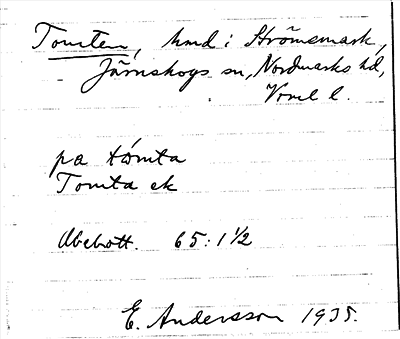 Tomten, hmd i Strömsmark,
Järnskogs sn, Nordmarks hd,
Värml l.
pa tömta
Tomta ek
Obebott. 65:1 1/2
E. Andersson 1935.